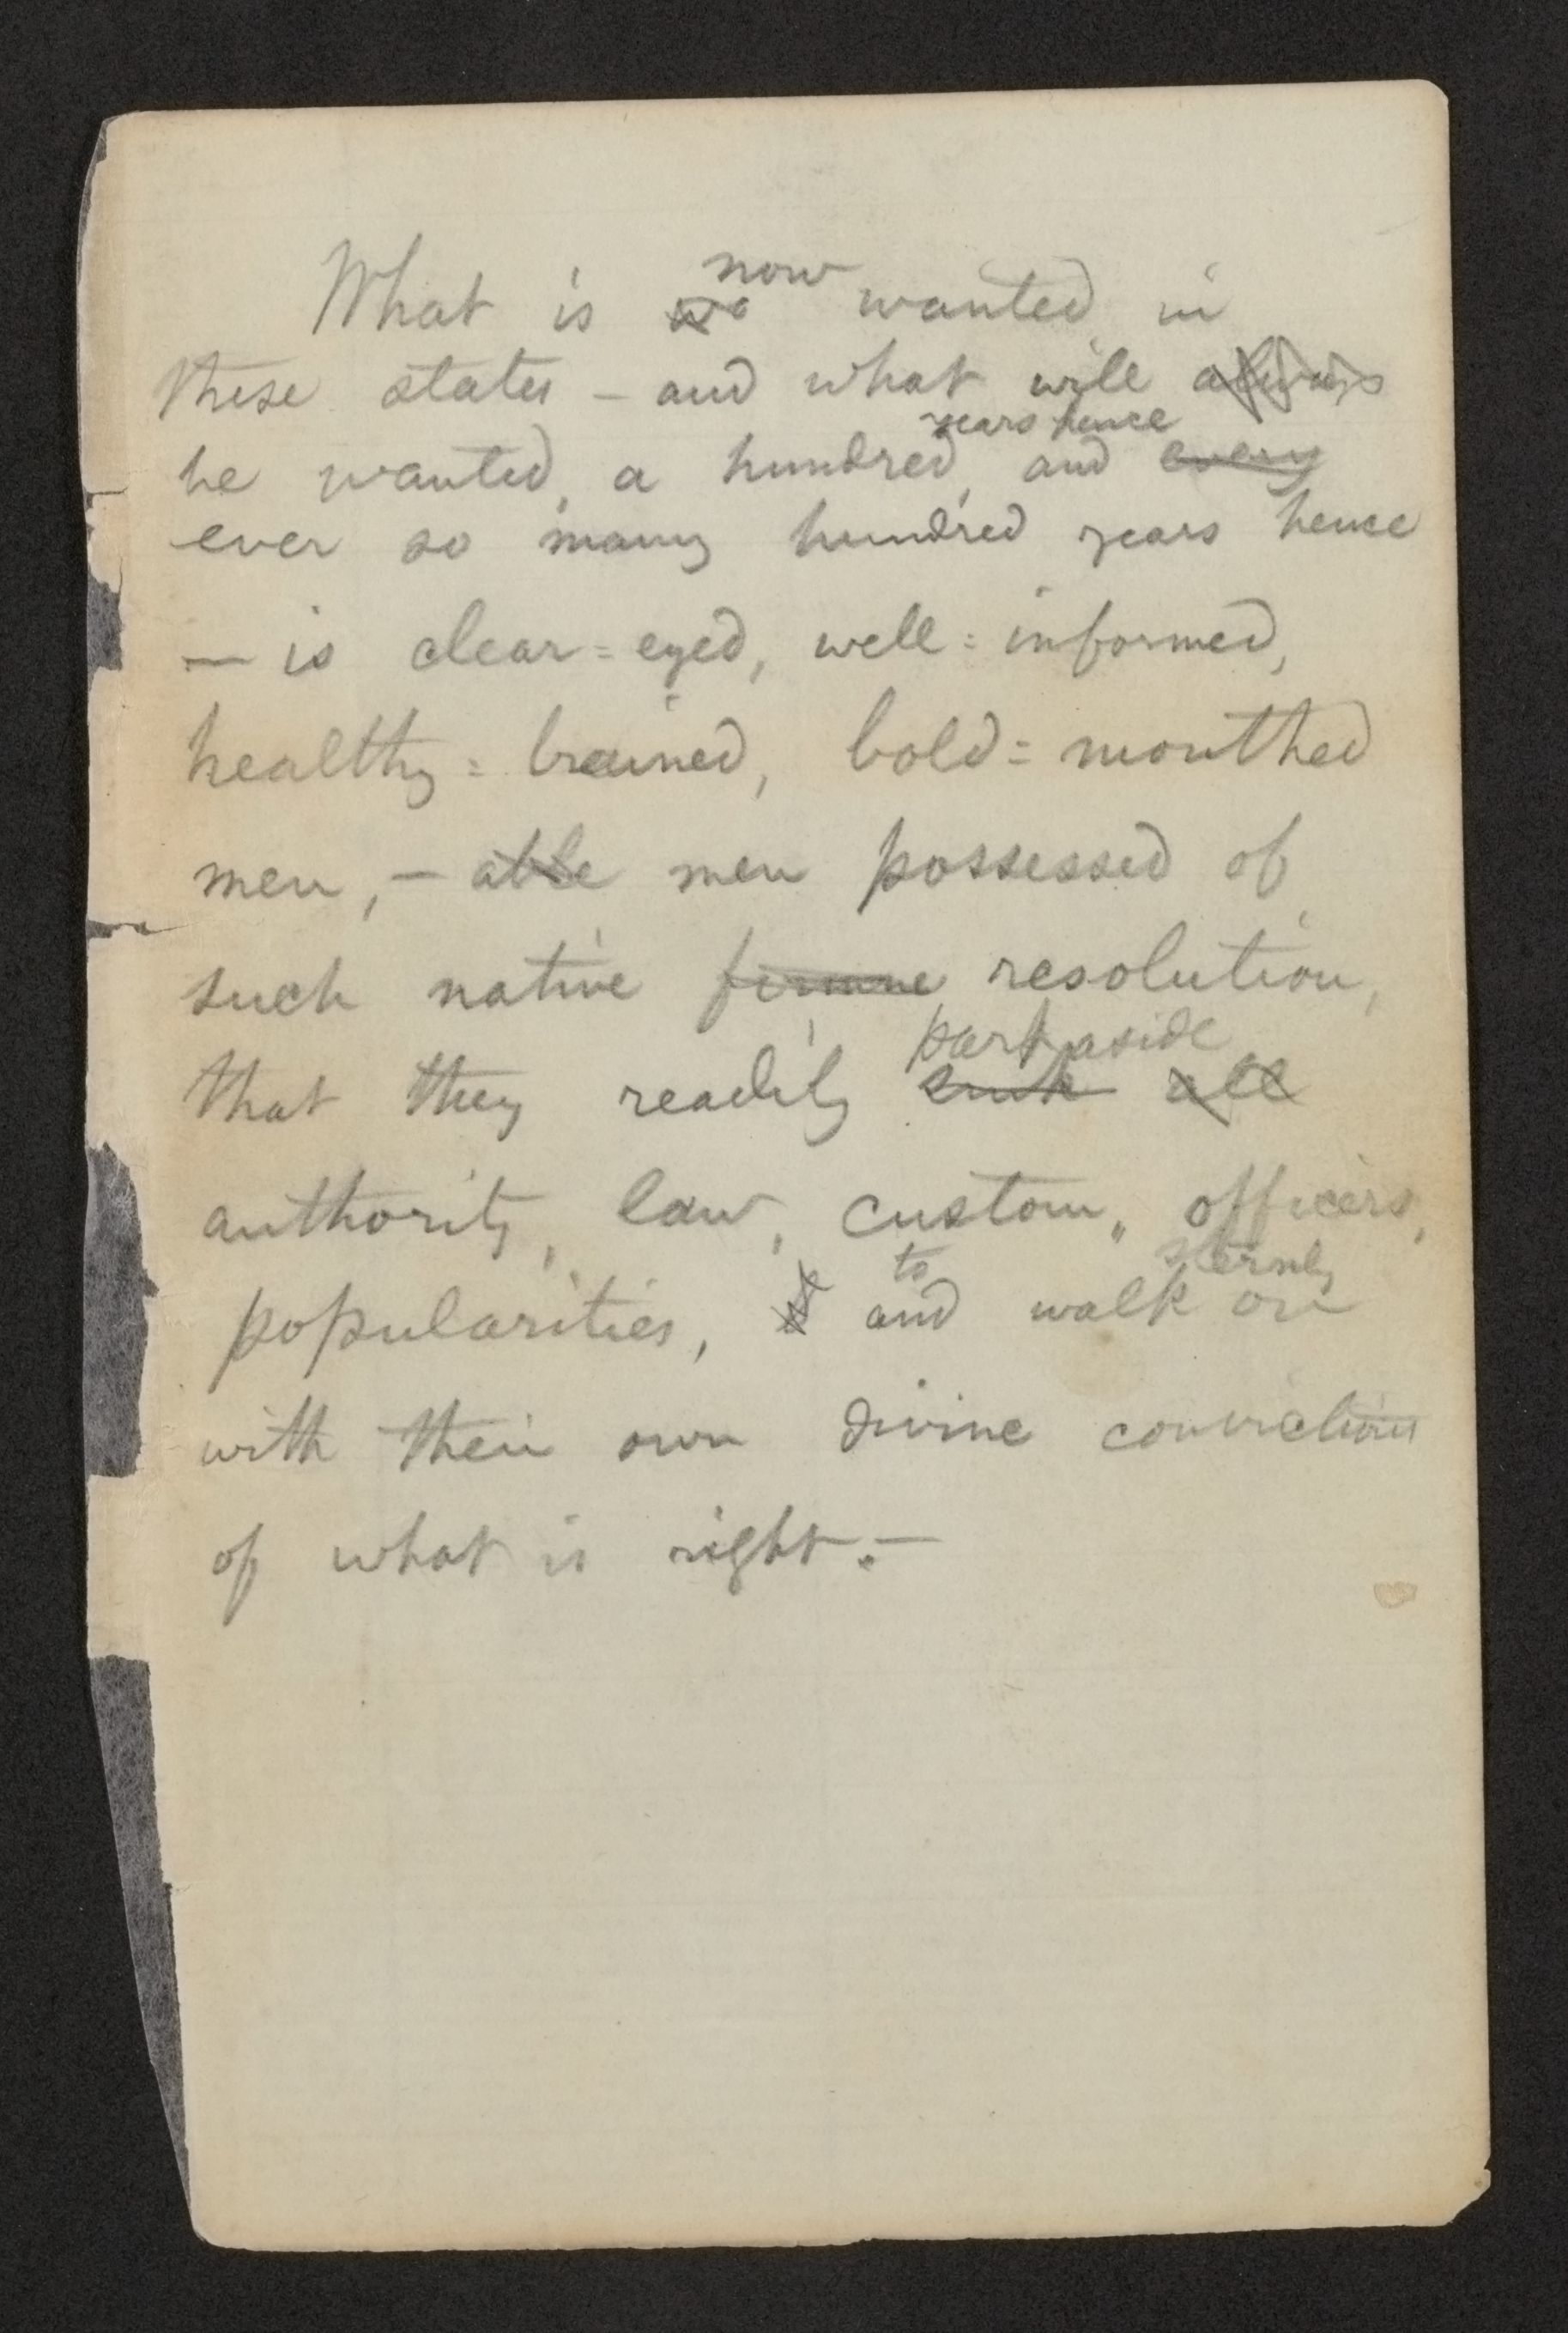 now
What is wa wanted in
these states — and what will always
years hence
be wanted, a hundred, and every
ever so many hundred years hence
— is clear=eyed, well=informed,
healthy=brained, bold=mouthed
men, — able men possessed of
such native firmne resolution,
part aside
that they readily all
authority, law, custom, officers,
to sternly
popularities, and walk on
with their own divine convictions
of what is right.—